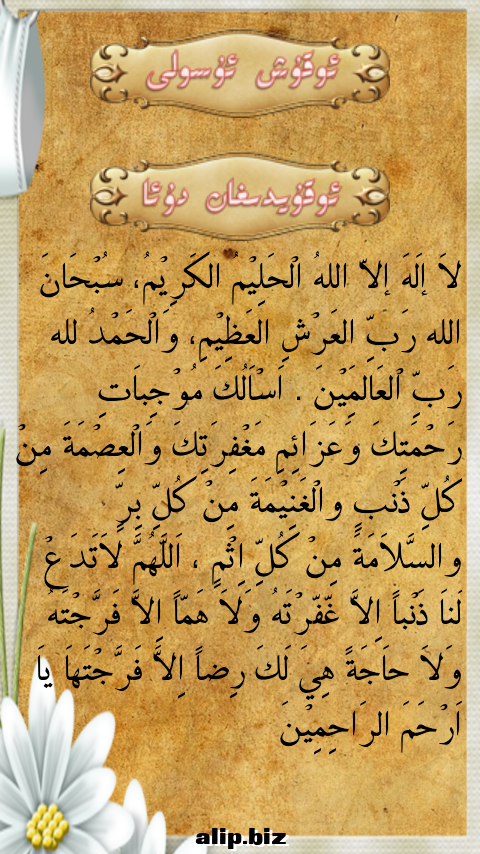 ئوقۇش ئۇسولى
ئوقۇيدىغان دۇئا
لاَ إلَهَ إلاّ اللهُ الْحَلِيْمُ الكَرِيْمُ، سُبْحَانَ
الله رَبِّ العَرْشِ العَظِيْمِ، وَالْحَمْدُ لله
رَبِّ الْعَالَمِيْنَ . اَسْاَلُكَ مُوْجِبَاتِ
رَحْمَتِكَ وَعَزَائِمِ مَغْفِرَتِكَ وَالْعِصْمَةَ مِنْ
كُلِّ ذَنْبٍ والْغَنِيْمَةَ مِنْ كُلِّ بِرٍّ
والسَّلاَمَةَ مِنْ كُلِّ اِثْمٍ ، اَللَّهُمَّ لاَتَدَعْ
لَنَا ذَنْباً اِلاَّ غَفّرْتَهُ وَلاَ هَمّاً الاَّ فَرَّجْتَهُ
وَلاَ حاَجَةً هِيَ لَكَ رِضاً اِلاَّ فَرَّجْتَهَا يَا
اَرْحَمَ الرَاحِمِيْنَ
alip.biz